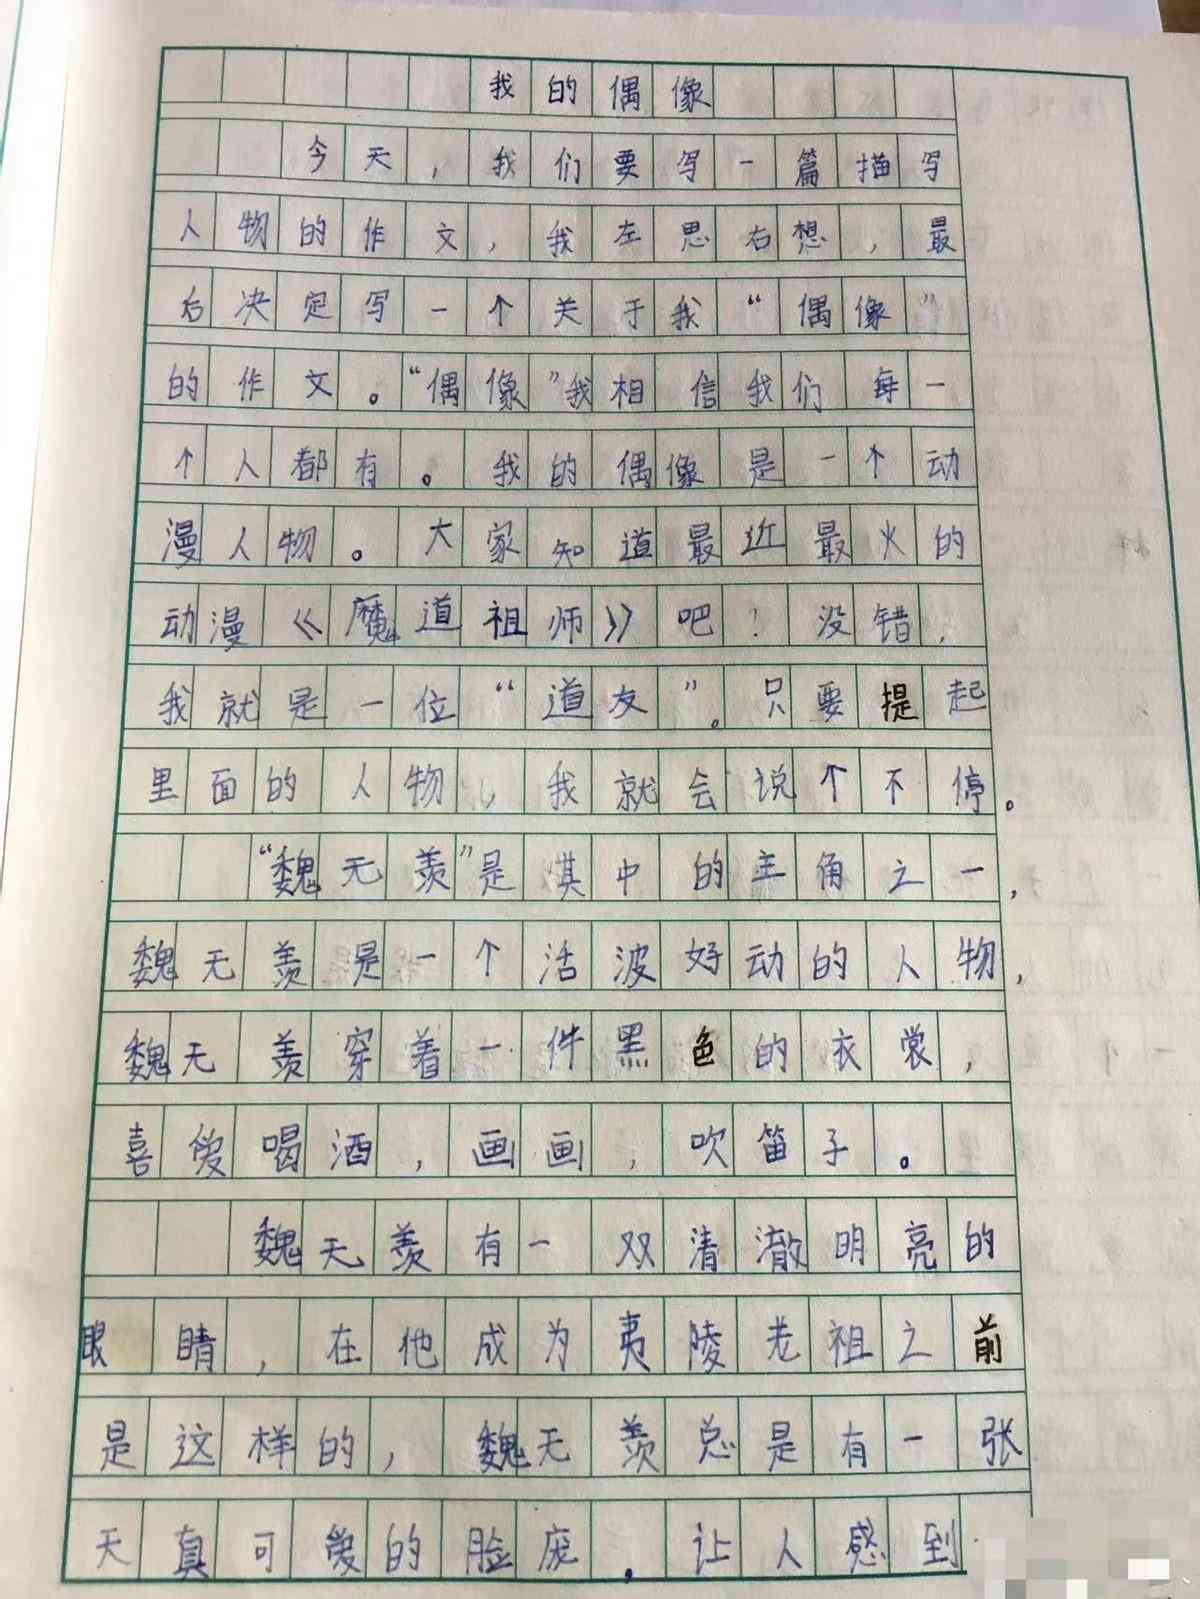 我的偶像
今天，我们要写一篇描写
人物的作文，我左思右想，最
后决定写一个关于我“偶像”
的作文。“偶像”我相信我们每一
个人都有。我的偶像是一个动
漫人物。大家知道最近最火的
动漫《魔道祖师》吧？没错，
我就是一位“道友”。只要提起
里面的人物，我就会说个不停。
“魏无羡”是其中的主角之一，
魏无羡是一个活波好动的人物，
魏无羡穿着一件黑色的衣裳，
喜爱喝酒，画画，吹笛子。
魏无羡有一双清澈明亮的
眼睛，在他成为夷陵老祖之前
是这样的，魏无羡总是有一张
天真可爱的脸庞，让人感到